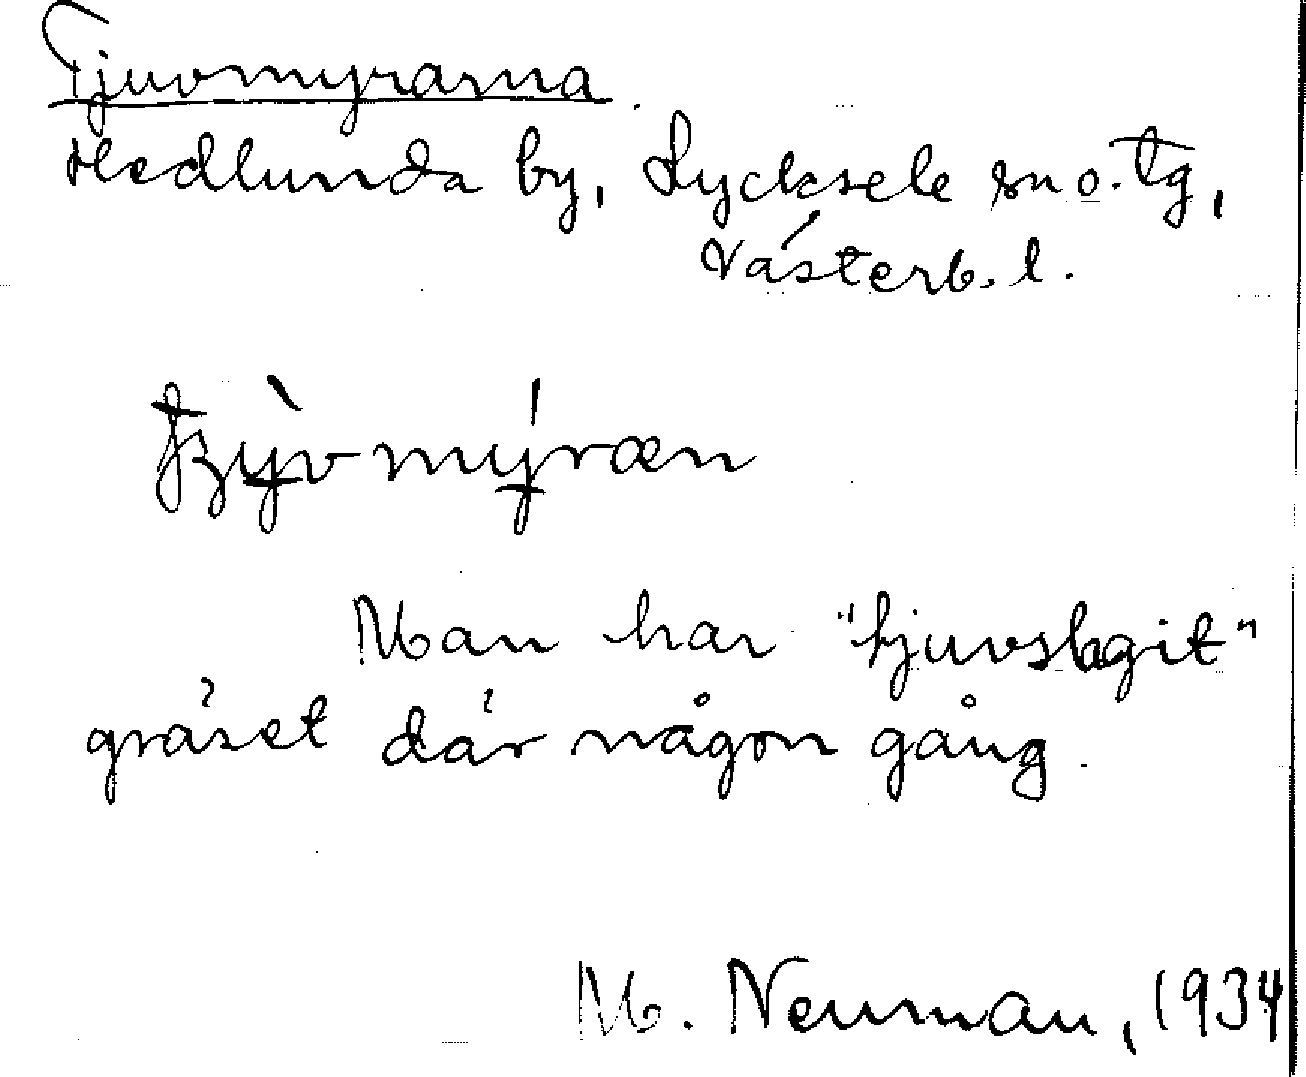 Tjuvmyrarna.
Hedlunda by, Lycksele sn o. Tg,
Västerb. l.
Man har "tjuvslagit"
gräset där någon gång.
M. Neuman, 1934